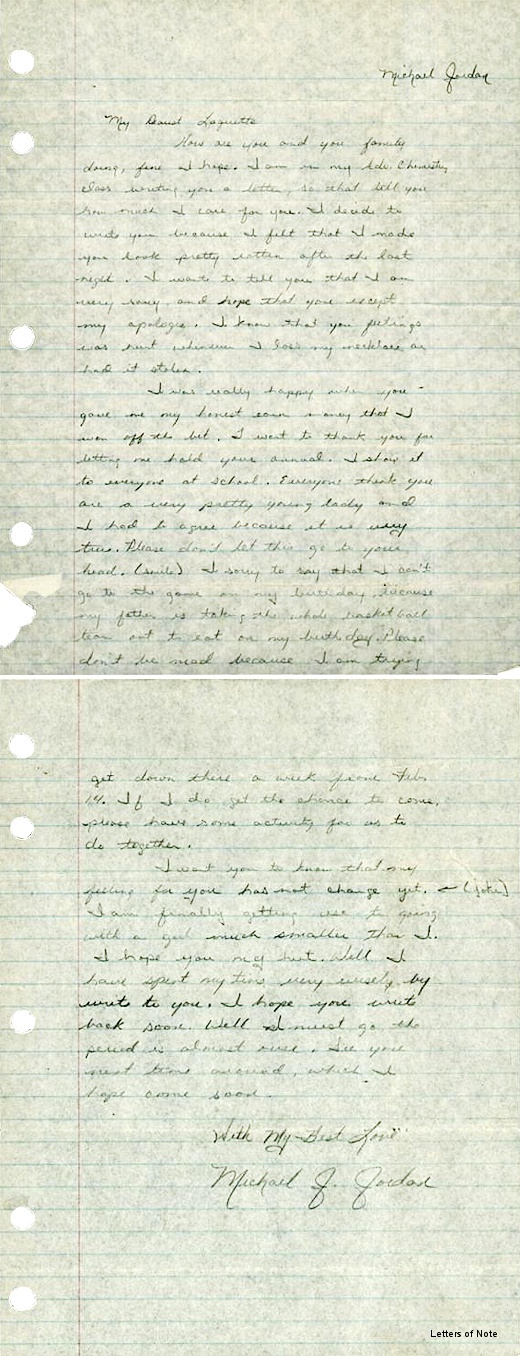 Michael Jordan
My Dearest Laquette
How are you and you family
doing, fine I hope. I am in my Adv. Chemistry
class writing you a letter, so that tell you
how much I care for you. I decide to
write you because I felt that I made
you look pretty rotten after the last
night. I want to tell you that I am
very sorry and hope that you except
my apologie. I know that you feelings
was hurt whenever I loss my necklace or
had it stolen.
I was really happy when you
gave me my honest earn money that I
won off the bet. I want to thank you for
letting me hold your annual. I show it
to everyone at school. Everyone think you
are a very pretty young lady and
I had to agree because it is very
true. Please don't let this go to your
head. (smile) I sorry to say that I can't
go to the game on my birthday because
my father is taking the whole basketball
team out to eat on my birthday. Please
don't be mad because I am trying
get down there a week from Feb.
14. If I do get the chance to come,
please have some activity for us to
do together.
I want you to know that my
feeling for you has not change yet. (joke)
I am finally getting use to going
with a girl much smaller than I.
I hope you my Well I
have spent my time very wisely by
write to you. I hope you write
back soon. Well I must go the
period is almost over. See you
next time around, which I
hope come soon.
With My Best Love
Michael J. Jordan
Letters of Note